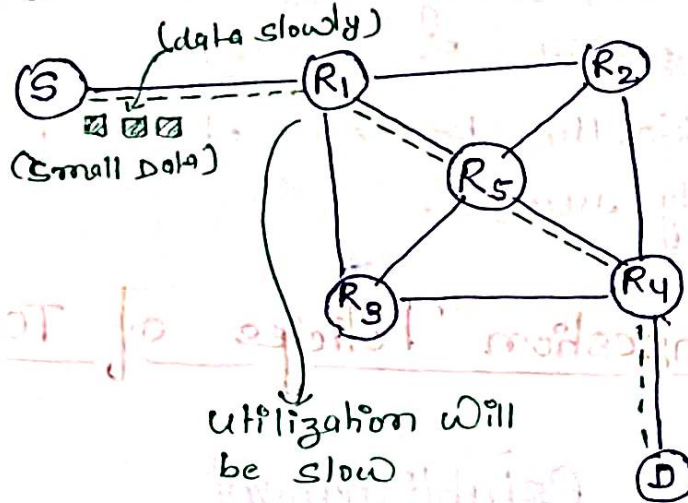 (data slowly)
S
R1
R2
(Small Data)
R5
R3
R4
utilization will
be slow
D